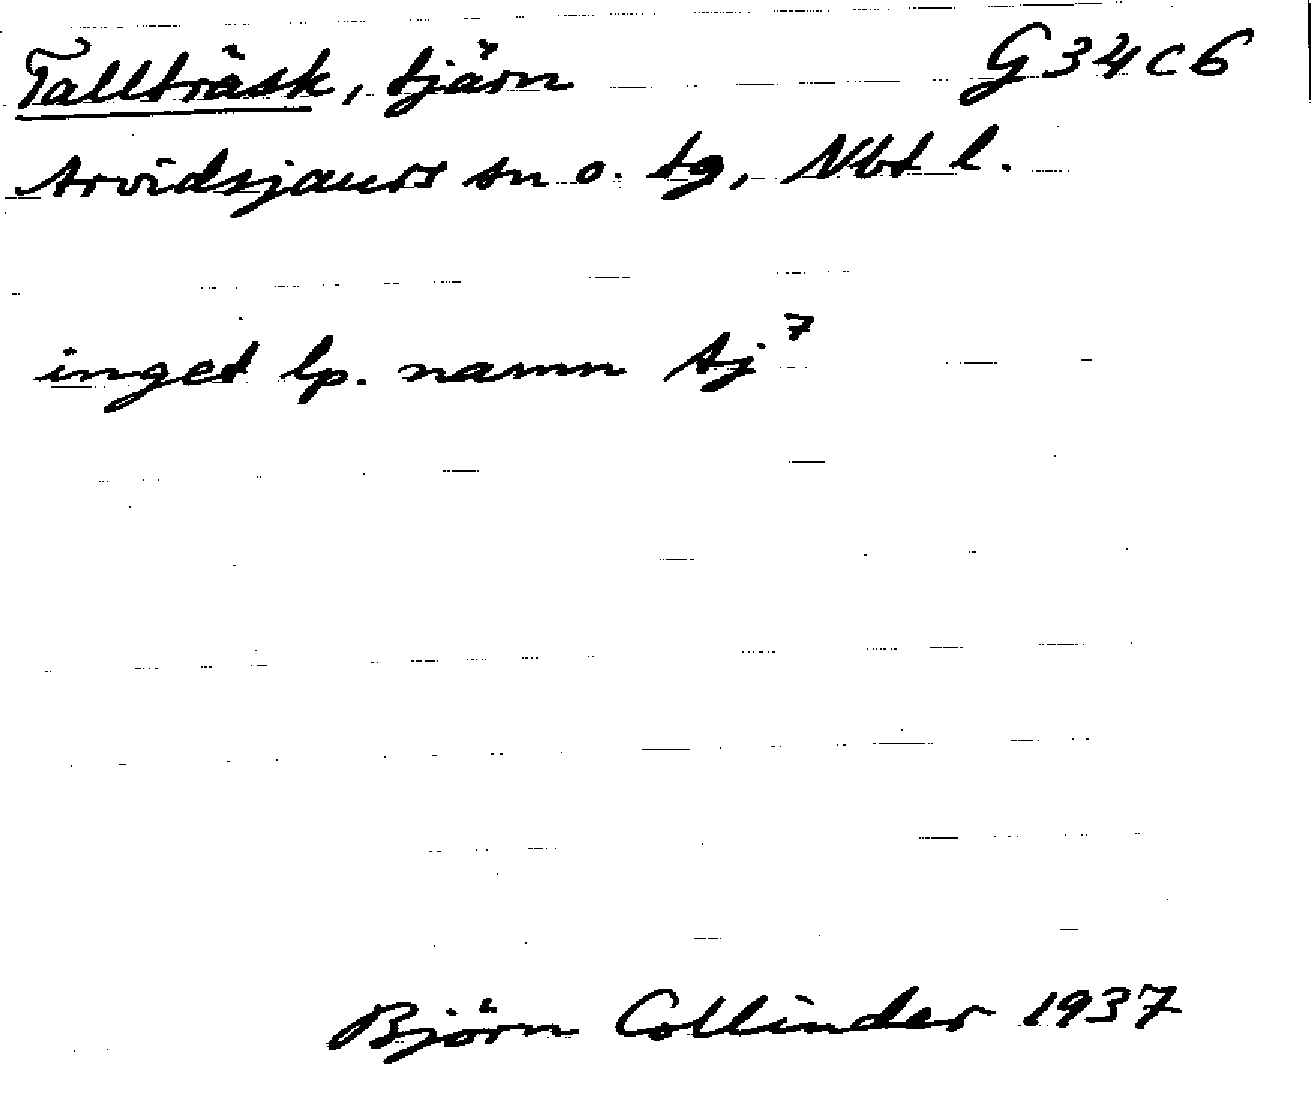 Tallträsk, tjärn G34c6
Arvidsjaurs sn o. tg, Nbt l.
inget lp. namn Aj⁷
Björn Collinder 1937